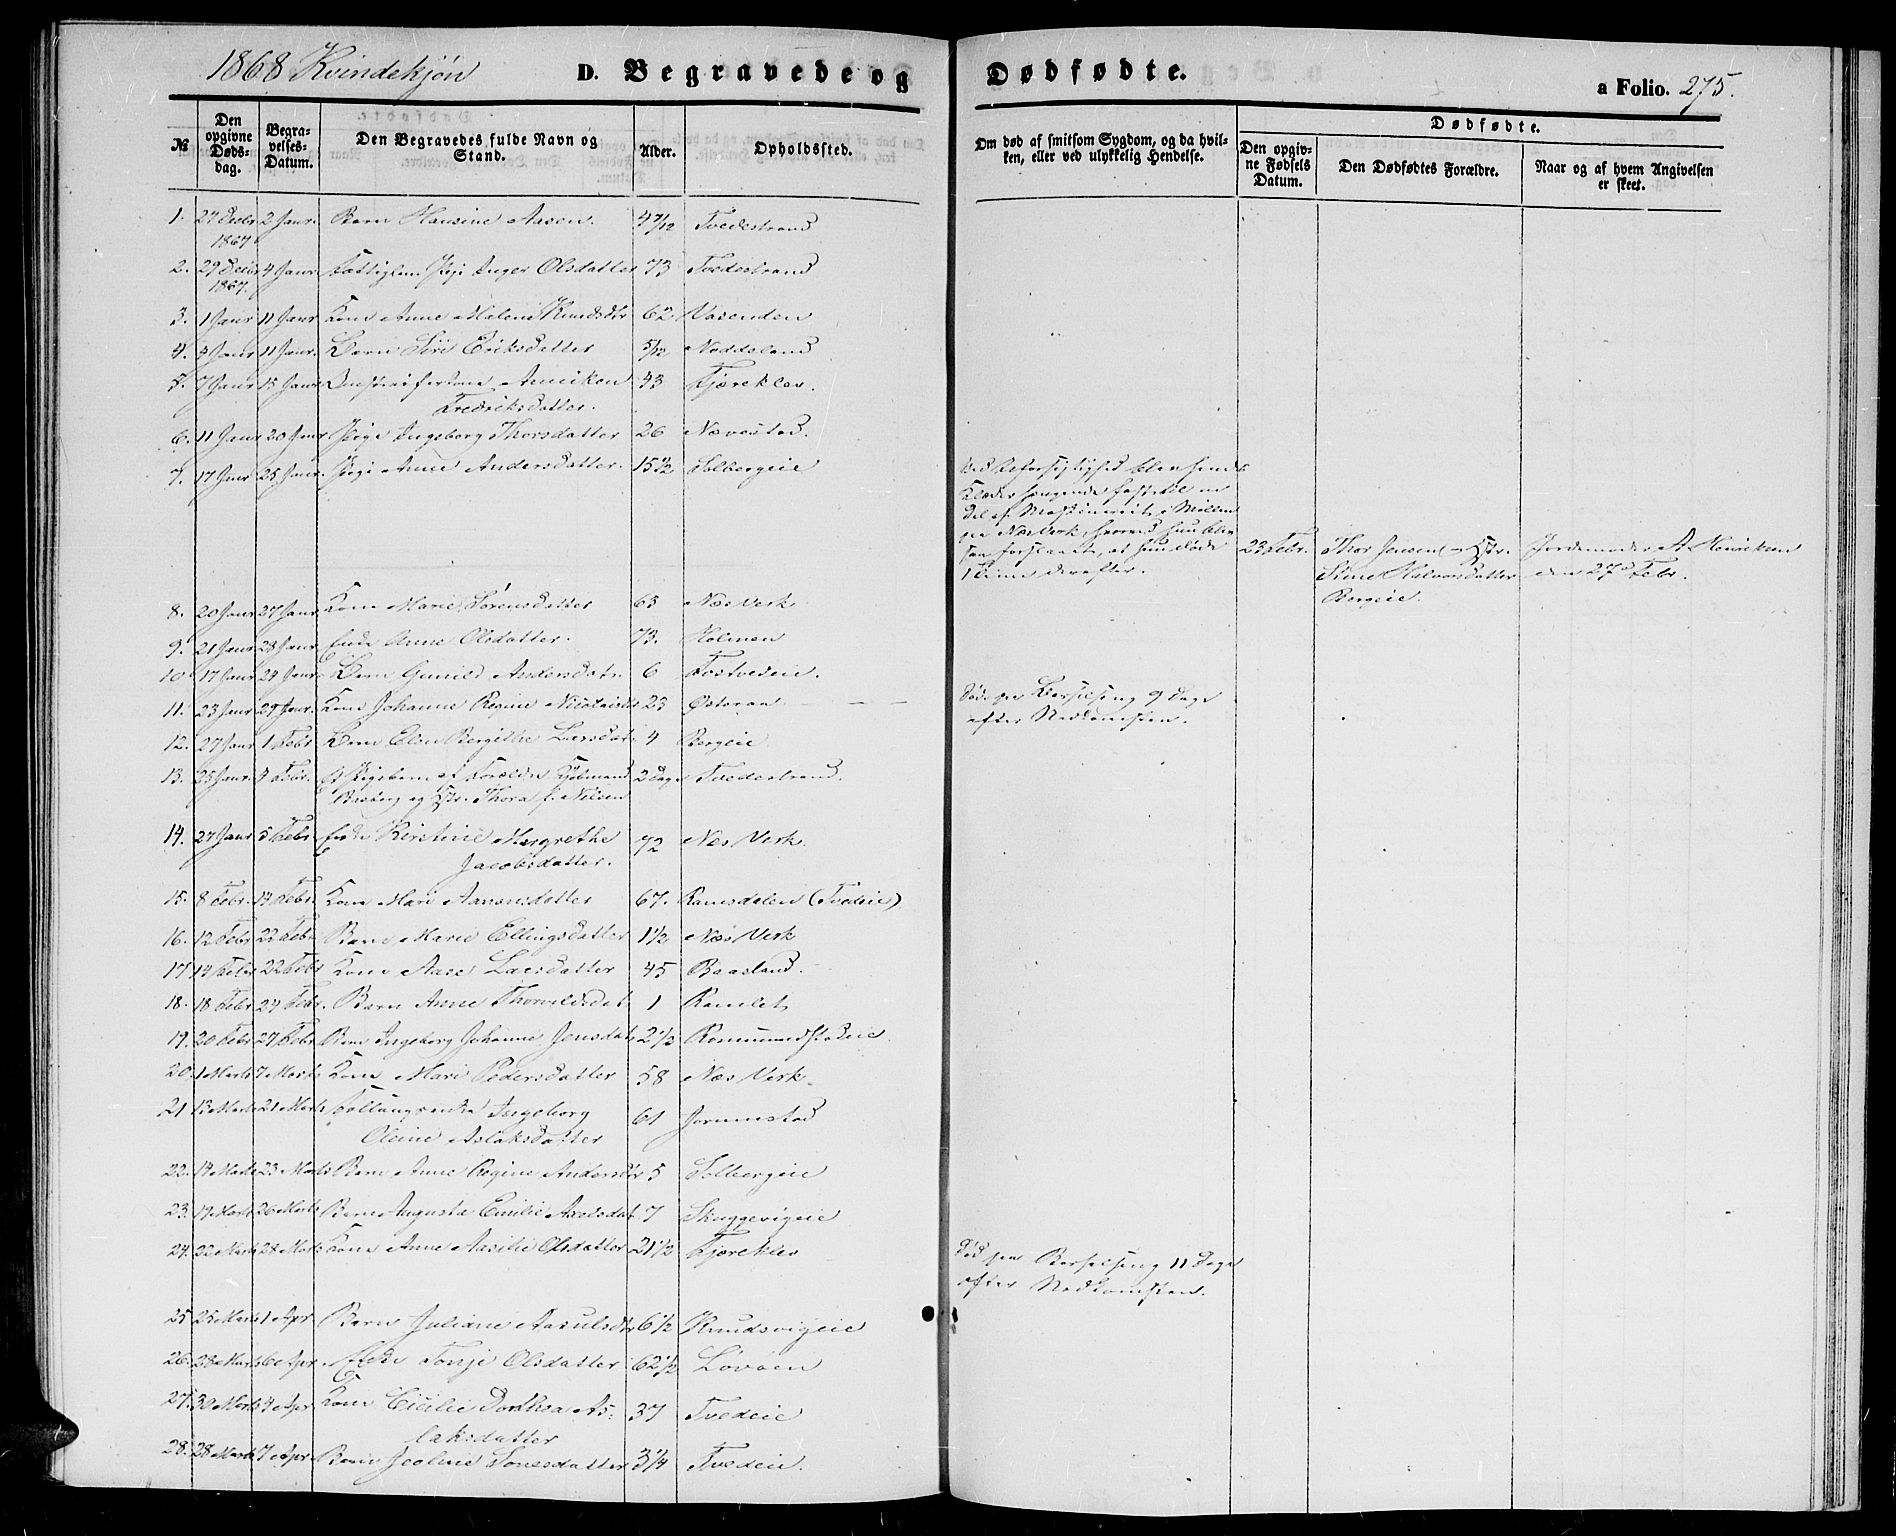 1868 Kvindekjøn D. Begravede og Dødfødte. a Folio. 275.
№ Den opgivne Døds-dag. Begra-velses-Datum. Den Begravedes fulde Navn og Stand. Alder. Opholdssted. Om død af smitsom Sygdom, og da hvil-ken, eller ved ulykkelig Hendelse. Dødfødte.
Den opgiv-ne Fødsels Datum. Den Dødfødtes Forældre. Naar og af hvem Angivelsen er skeet.
1. 27 Decbr 1867 2 Janr. Barn Hansine Aasen. 4 7/12 Tvedestrand
2. 29 Decbr 1867. 4 Janr Inger Olsdatter 73 Tvedestrand
3. 1 Janr 11 Janr Kone Anne Malene Knudsdtr 62 Vasenden
4. 4 Janr 11 Janr. Barn Siri Eriksdatter 5/12 Noddeland
5. 7 Janr 15 Janr Anniken Fredriksdatter. 43 Fjæreklev.
6. 11 Janr 20 Janr Pige Ingeborg Thorsdatter 26 Nævestad.
7. 17 Janr 25 Janr. Pige Anne Andersdatter. 15 1/2 Solbergeie
Ved Uforsigtighed blev hendes
Klæder hengende fast til en
Del af Maskineriet i Møllen
paa Næs Verk, hvorved hun blev
saa forslaaet, at hun døde
1 Time derefter.
23 Febr. Thor Jensen og Hstr.
Stine Halvorsdatter
Bergeie.
Jordemoder A. Henriksen
den 27de Febr.
8. 20 Janr 27 Janr. Kone Marie Sørensdatter 65 Næs Verk
9. 21 Janr 28 Janr Enke Anne Olsdatter. 73. Holmen
10 17 Janr 24 Janr Barn Gunild Andersdatr. 6 Fostvedeie.
11. 23 Janr 27 Janr. Kone Johanne Regine Nicolaisdtr 23 Østeraa Døde paa Barselseng 9 Dage
efter Nedkomsten.
12. 27 Janr 1 Febr Barn Elen Bergithe Larsdatr 4 Bergeie
13. 25 Janr. 4 Febr. Et Pigebarn af Forældre Kjøbmand
Busberg og Hstr. Thora f. Nilsen 2 Dage Tvedestrand.
14. 27 Janr 5 Febr Enke Kirstine Margrethe
Jacobsdatter. 72 Næs Verk.
15. 8 Febr. 14 Febr. Kone Mari Aanonsdatter 67. Ramsdalen (Tvedeie)
16. 12 Febr 22 Febr Barn Marie Ellingsdatter 1 1/2 Næs Verk
17 14 Febr 22 Febr Kone Aase Larsdatter 45 Baasland.
18. 18 Febr 24 Febr. Barn Anne Thorvildsdatr 1 Ramlet
19. 20 Febr 27 Febr Barn Ingeborg Johanne Jensdatr 2 1/2 Romundstadeie.
20. 1 Marts 7 Marts Kone Mari Pedersdatter 58 Næs Verk.
21 13 Marts 21 Marts Ingeborg
Oleine Aslaksdatter 61 Jorunstad
22. 14 Marts 23 Marts Barn Anne Regine Andersdtr 5 Solbergeie
23. 19 Marts 26 Marts Barn Augusta Emilie Axelsdatr 7 Skuggevigeie
24. 22 Marts 28 Marts Kone Anne Aasilie Olsdatter 21 1/2 Fjæreklev Død paa Barselseng 11 Dage
efter Nedkomsten.
25 25 Marts 1 Apr Barn Juliane Aasulsdtr 6 1/2 Knudsvigeie
26. 28 Marts 6 Apr. Enke Tonje Olsdatter 62 1/2 Lovøen
27. 30 Marts 4 Apr Kone Cicilie Dorthea As-
laksdatter 37 Tvedeie
28. 28 Marts 7 Apr Barn Jeoline Tonesdatter 3 1/4 Tvedeie.